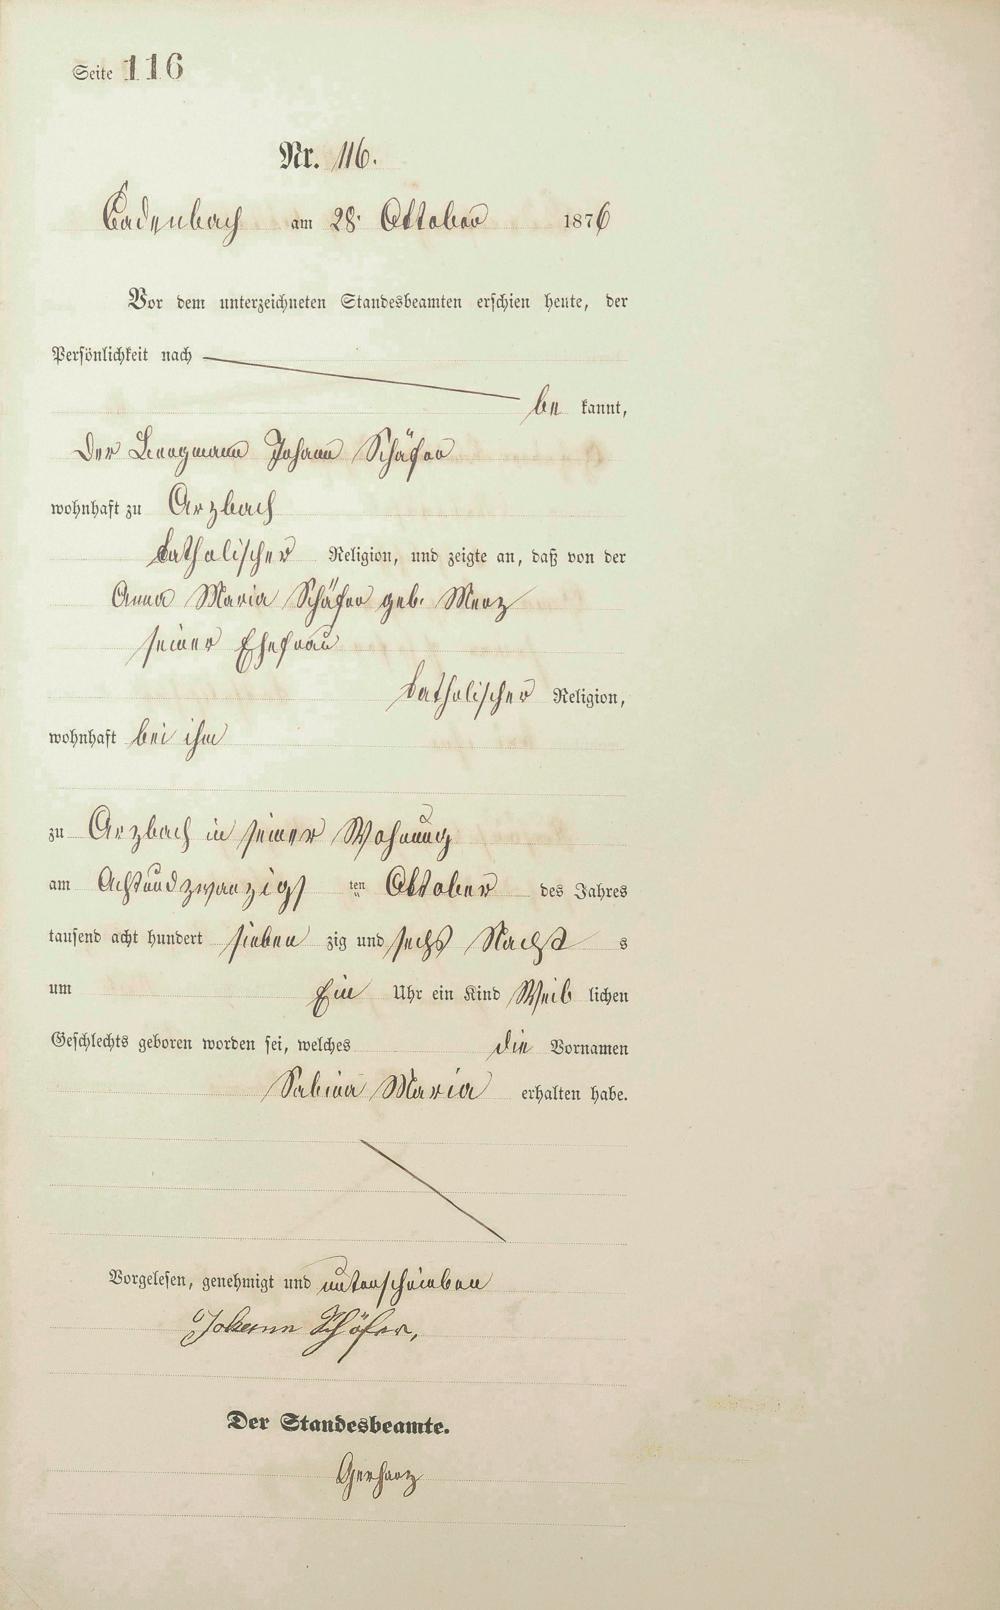 Seite 116
Nr. 116.
Cadenbach am 28. Oktober 1876
Vor dem unterzeichneten Standesbeamten erschien heute, der
Persönlichkeit nach
be kannt,
der Bergmann Johann Schäfer
wohnhaft zu Arzbach
katholischer Religion, und zeigte an, daß von der
Anna Maria Schäfer geb. Merz
seiner Ehefrau
katholischer Religion,
wohnhaft bei ihm
zu Arzbach in seiner Wohnung
am Achtundzwanzigs ten Oktober des Jahres
tausend acht hundert sieben zig und sechs Nachst s
um Ein Uhr ein Kind Weib lichen
Geschlechts geboren worden sei, welches die Vornamen
Sabina Maria erhalten habe.
Vorgelesen, genehmigt und unterschrieben
Johann Schäfer,
Der Standesbeamte.
Gerharz